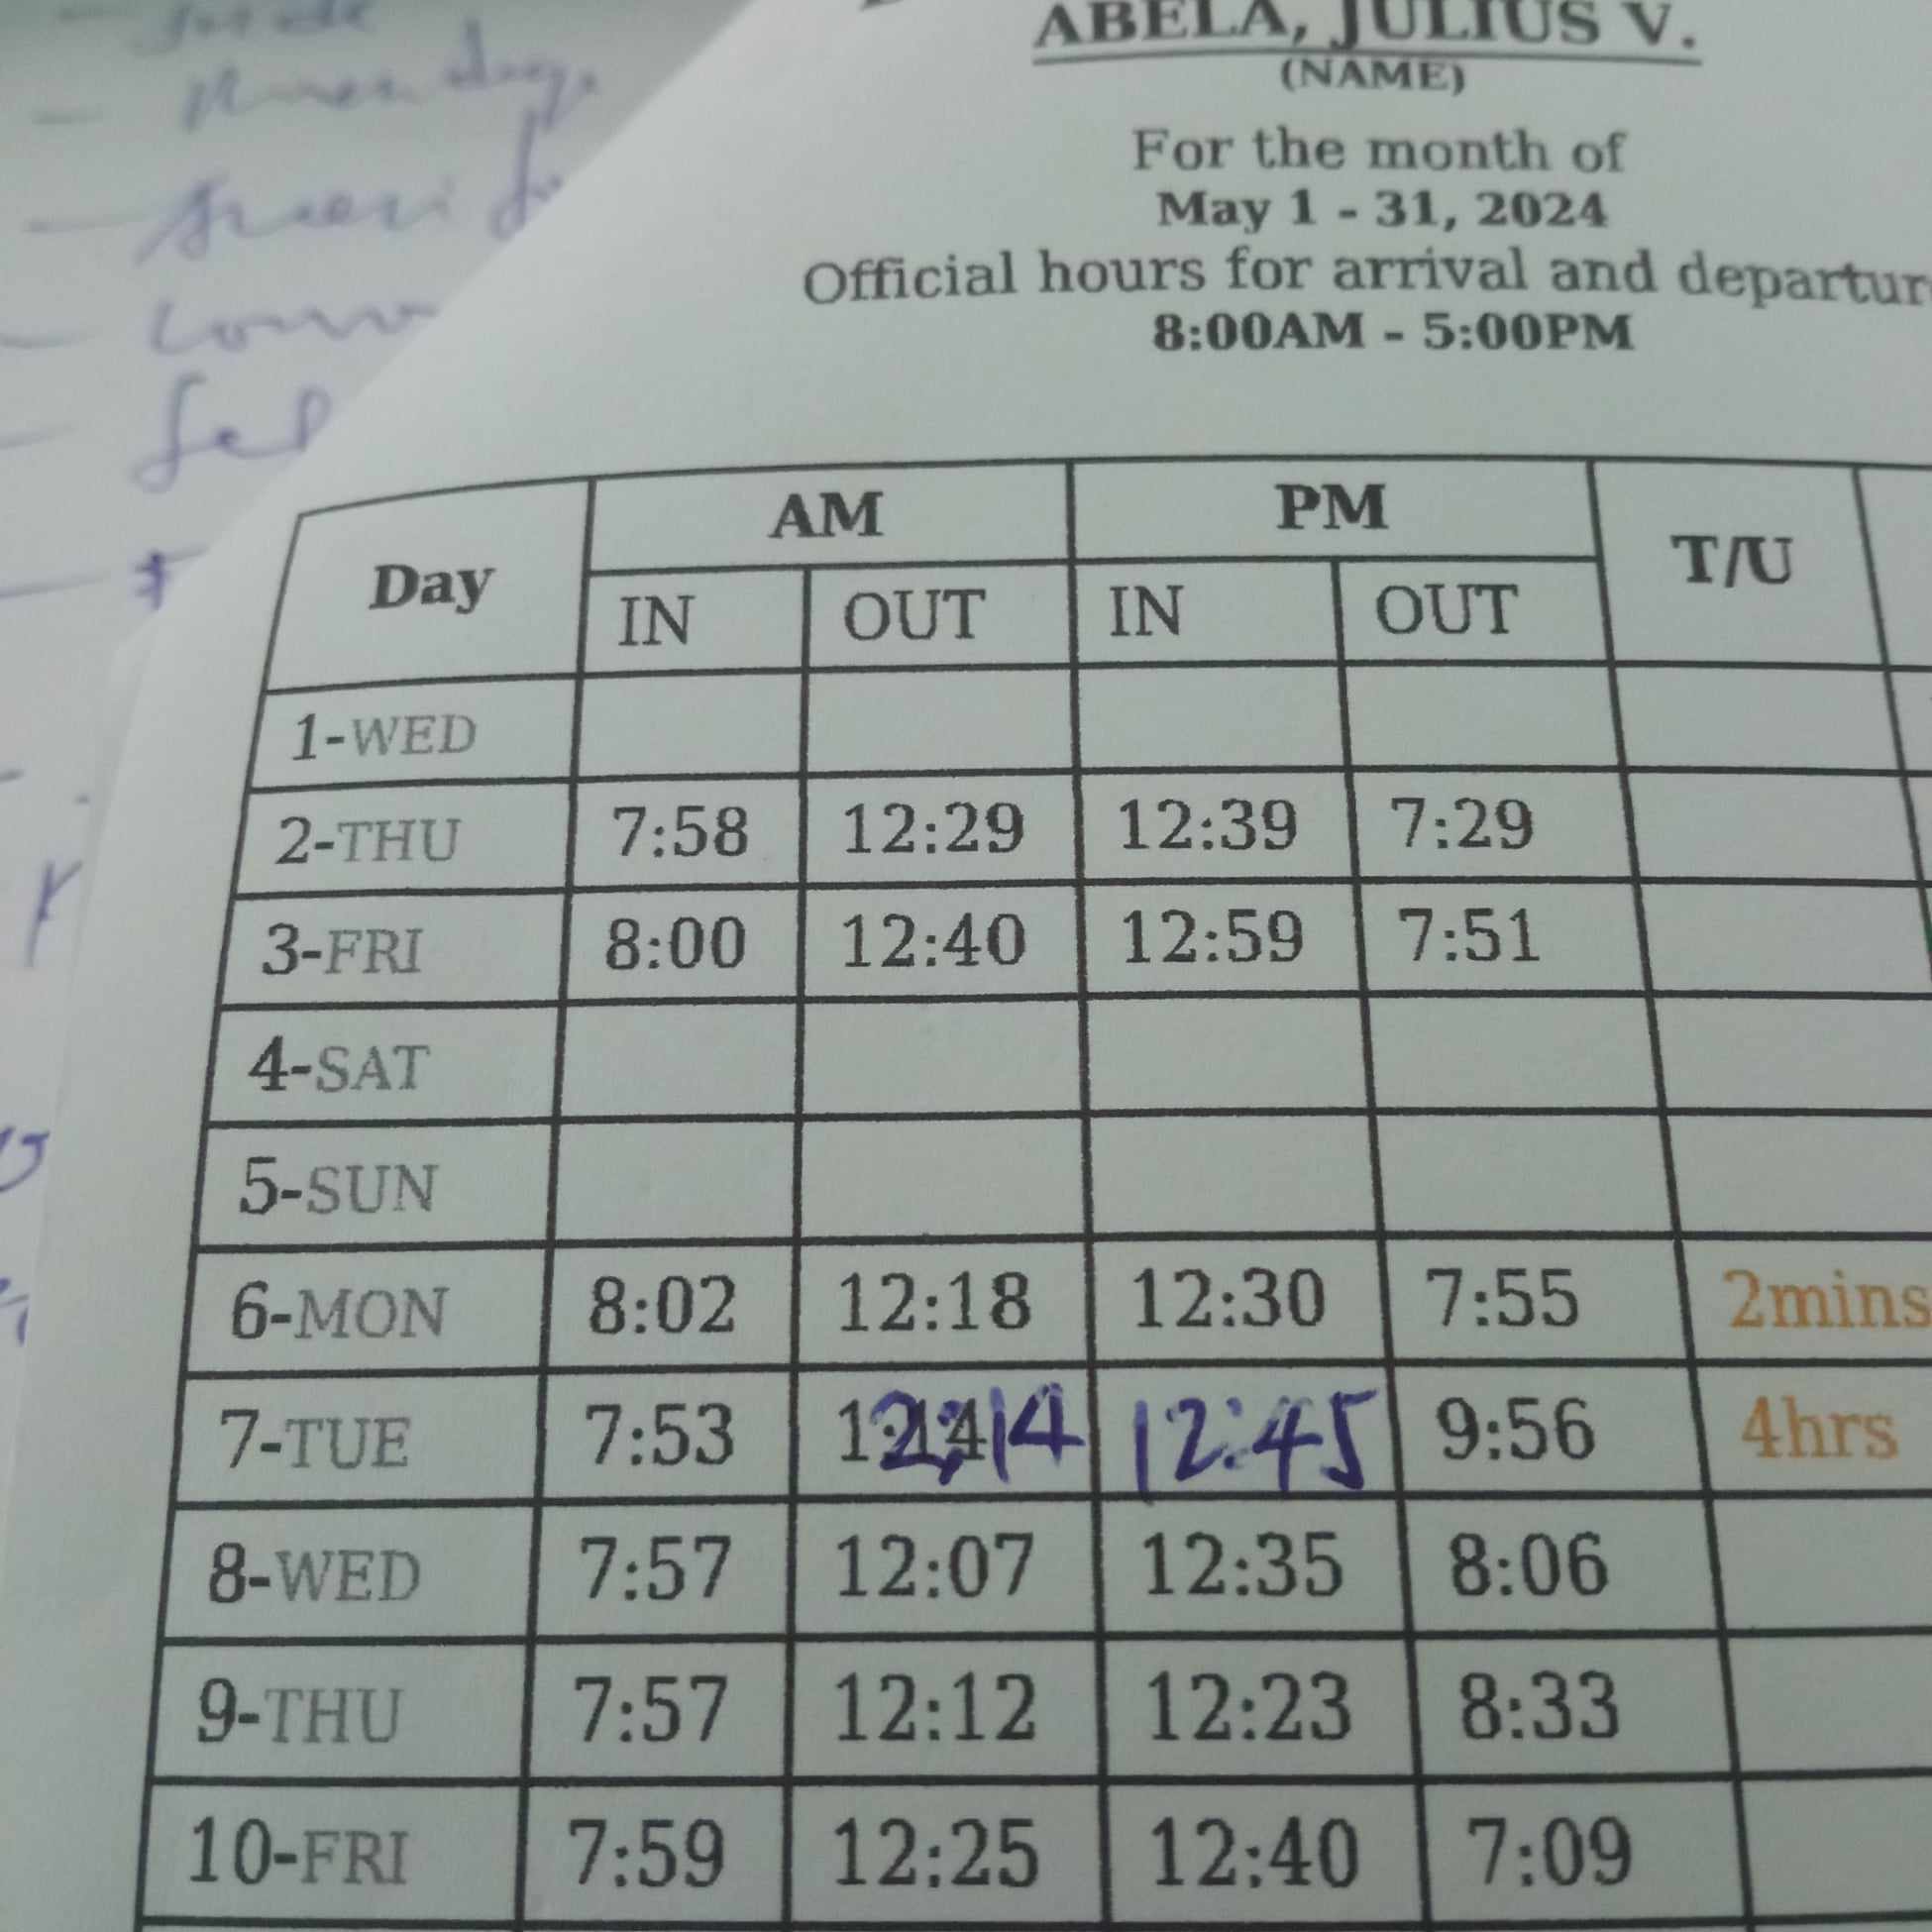 ABELA, JULIUS V.
(NAME)
For the month of
May 1 - 31, 2024
Official hours for arrival and departur
8:00AM - 5:00PM
Day AM PM T/U
IN OUT IN OUT
1-WED
2-THU 7:58 12:29 12:39 7:29
3-FRI 8:00 12:40 12:59 7:51
4-SAT
5-SUN
6-MON 8:02 12:18 12:30 7:55 2mins
7-TUE 7:53 12:14 12:45 9:56 4hrs
8-WED 7:57 12:07 12:35 8:06
9-THU 7:57 12:12 12:23 8:33
10-FRI 7:59 12:25 12:40 7:09